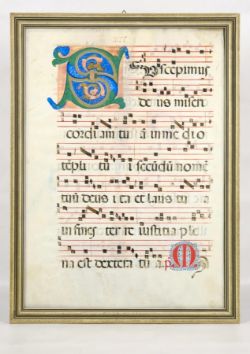 S uscepimus
de us miseri
cordi am tu ā in me di o
tēpli tu i secūdū nomē
tuū deus i ta et laus tu a
in fines ter re iustitia ple
na est dextera tu a M